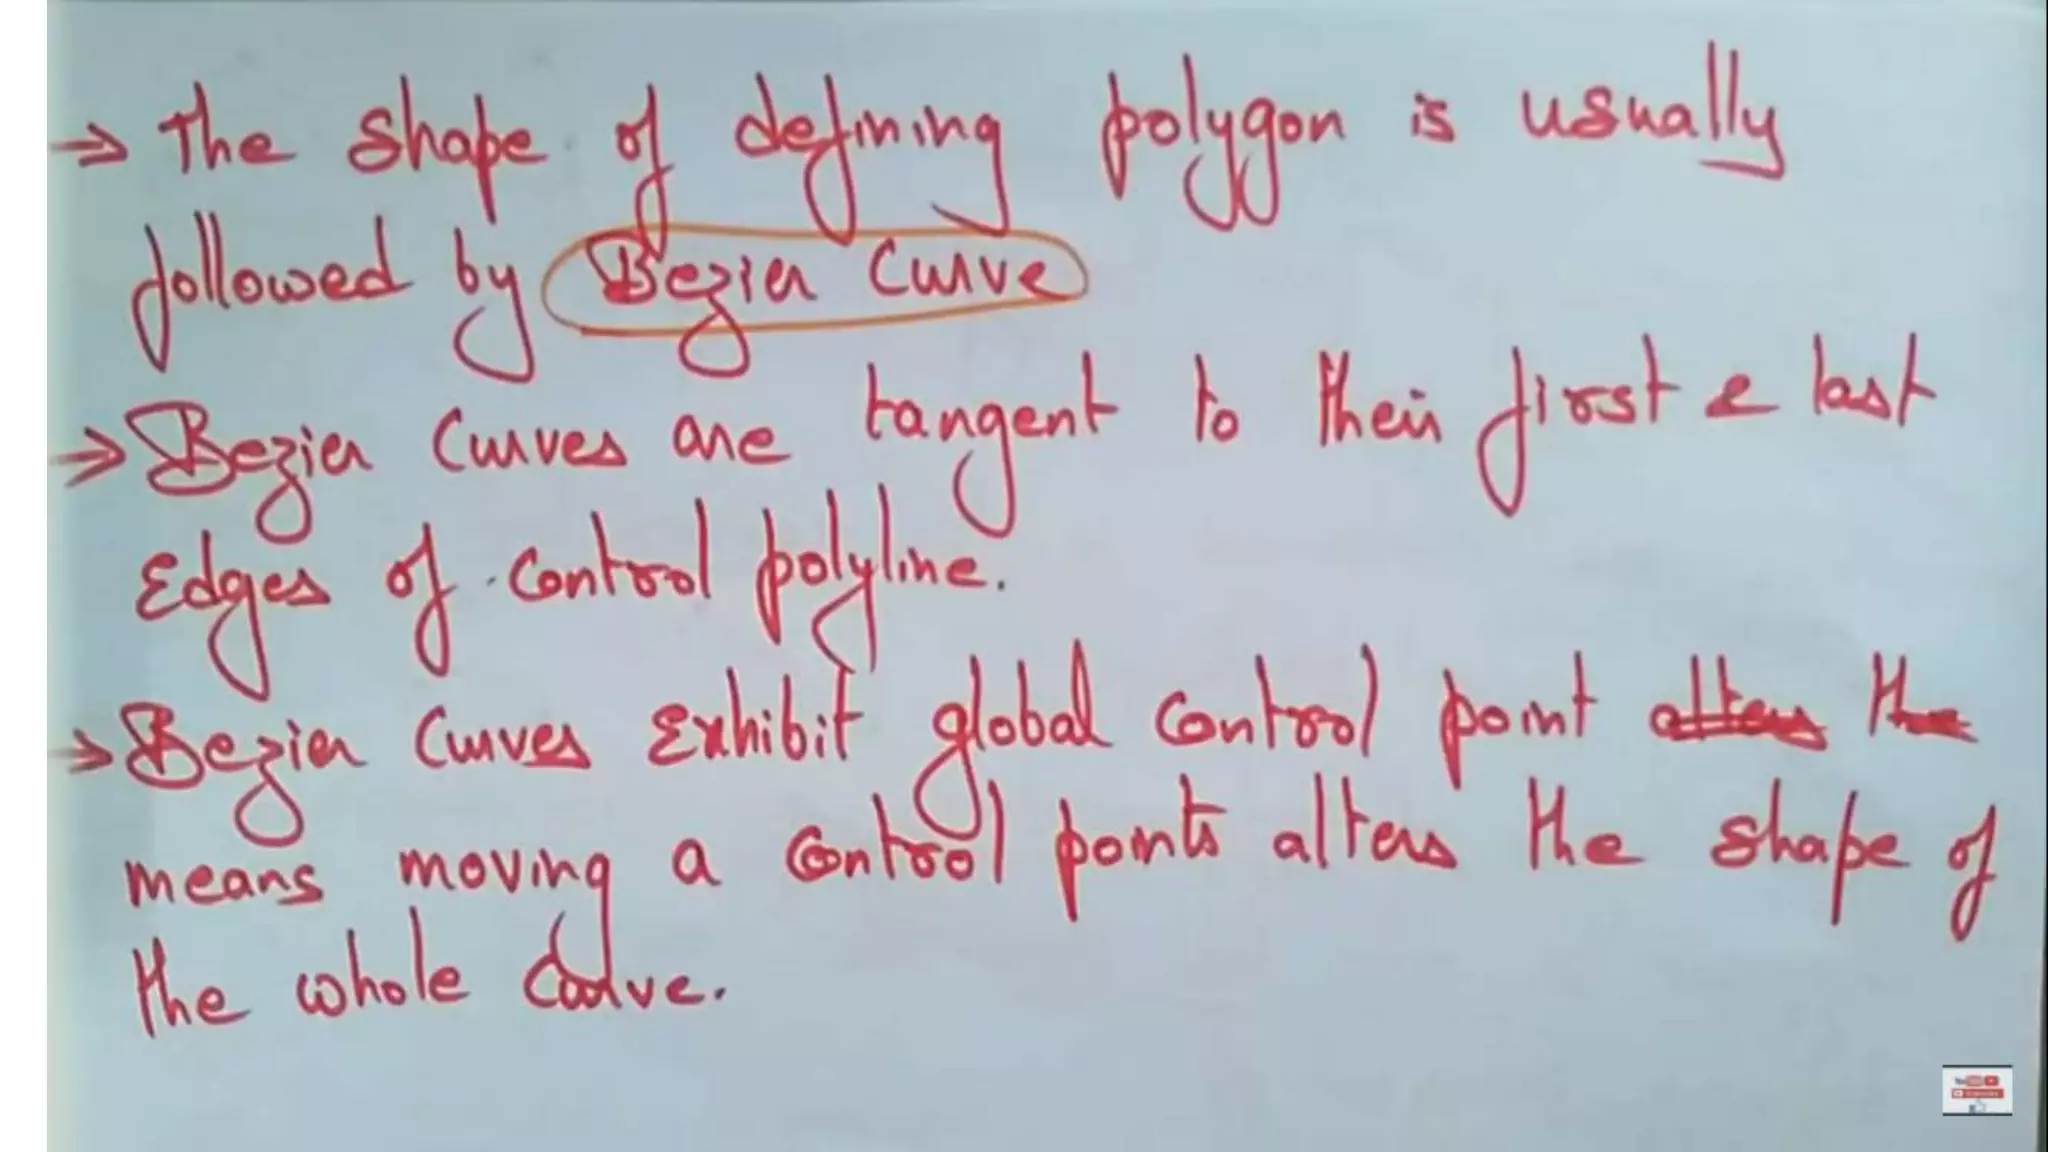 → The shape of defining polygon is usually
followed by Bezier Curve
→ Bezier Curves are tangent to their first & last
Edges of control polyline.
→ Bezier Curves Exhibit global control point alters the
means moving a control points alters the shape of
the whole curve.